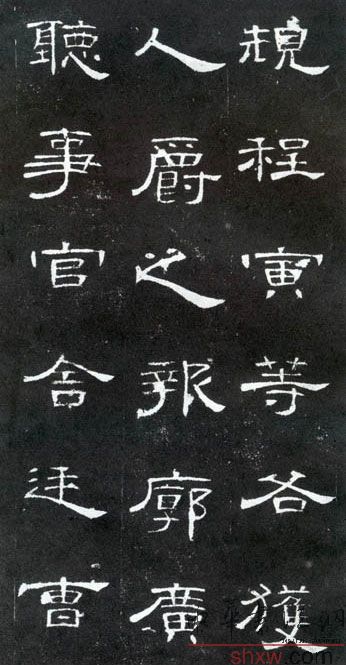 規程寅等各獲
人爵之報廓廣
聽事官舍廷曹
shxw.com